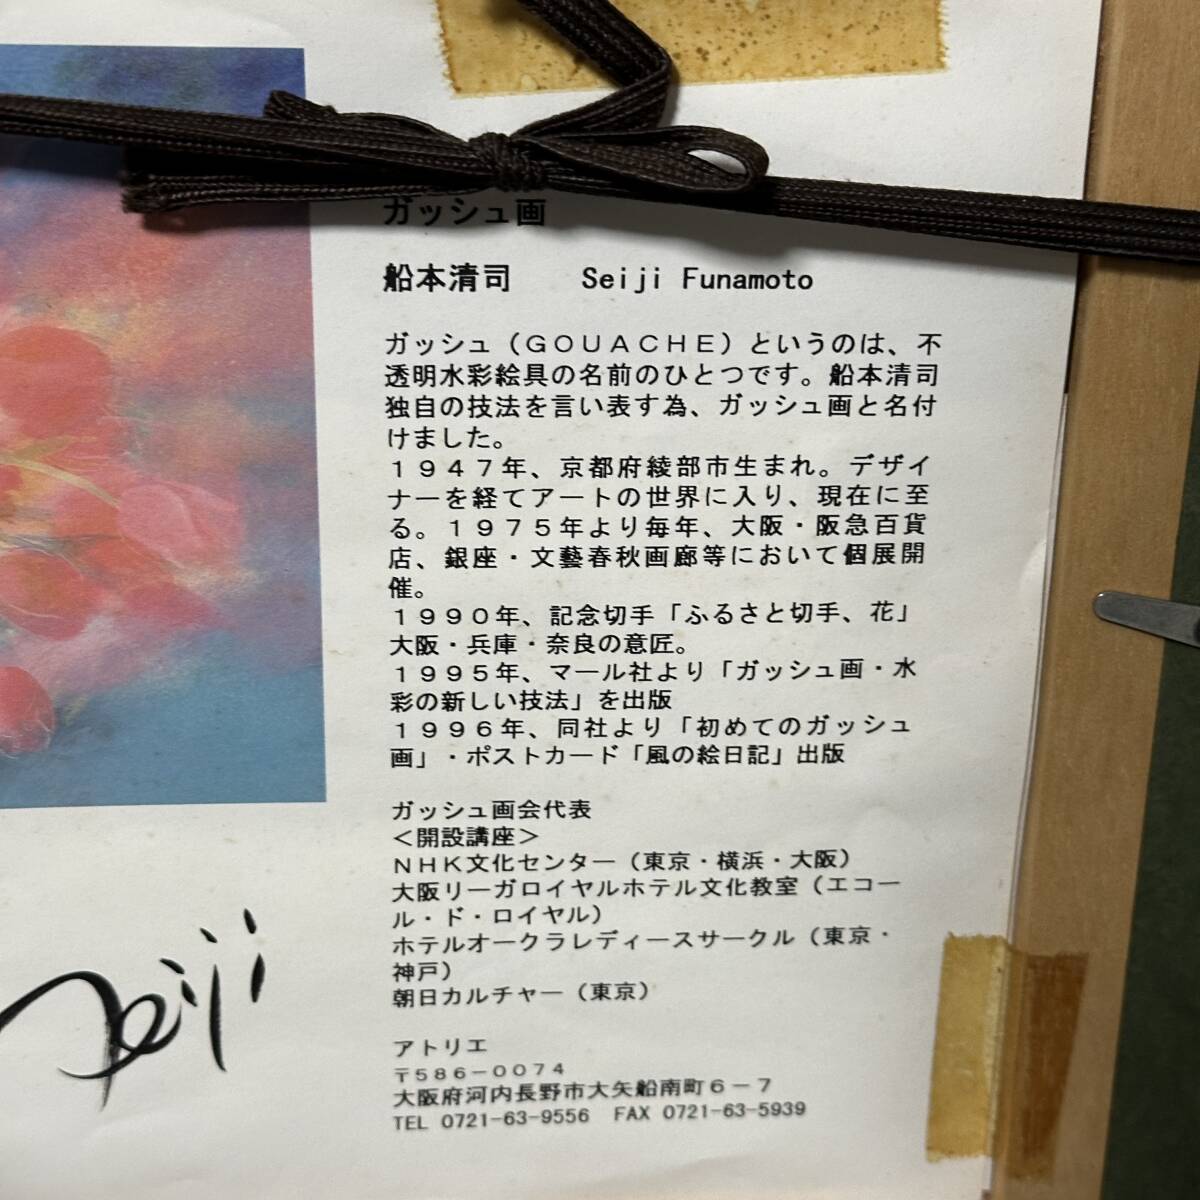 ガッシュ画
船本清司 Seiji Funamoto
ガッシュ（ＧＯＵＡＣＨＥ）というのは、不
透明水彩絵具の名前のひとつです。船本清司
独自の技法を言い表す為、ガッシュ画と名付
けました。
１９４７年、京都府綾部市生まれ。デザイ
ナーを経てアートの世界に入り、現在に至
る。１９７５年より毎年、大阪・阪急百貨
店、銀座・文藝春秋画廊等において個展開
催。
１９９０年、記念切手「ふるさと切手、花」
大阪・兵庫・奈良の意匠。
１９９５年、マール社より「ガッシュ画・水
彩の新しい技法」を出版
１９９６年、同社より「初めてのガッシュ
画」・ポストカード「風の絵日記」出版
ガッシュ画会代表
＜開設講座＞
ＮＨＫ文化センター（東京・横浜・大阪）
大阪リーガロイヤルホテル文化教室（エコー
ル・ド・ロイヤル）
ホテルオークラレディースサークル（東京・
神戸）
朝日カルチャー（東京）
アトリエ
〒５８６－００７４
大阪府河内長野市大矢船南町６－７
TEL 0721-63-9556 FAX 0721-63-5939
Seiji